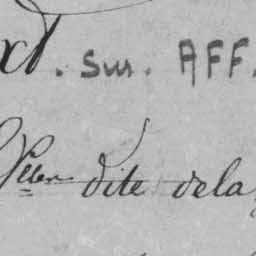 xt. Sur. AFF.
Peter dite dela